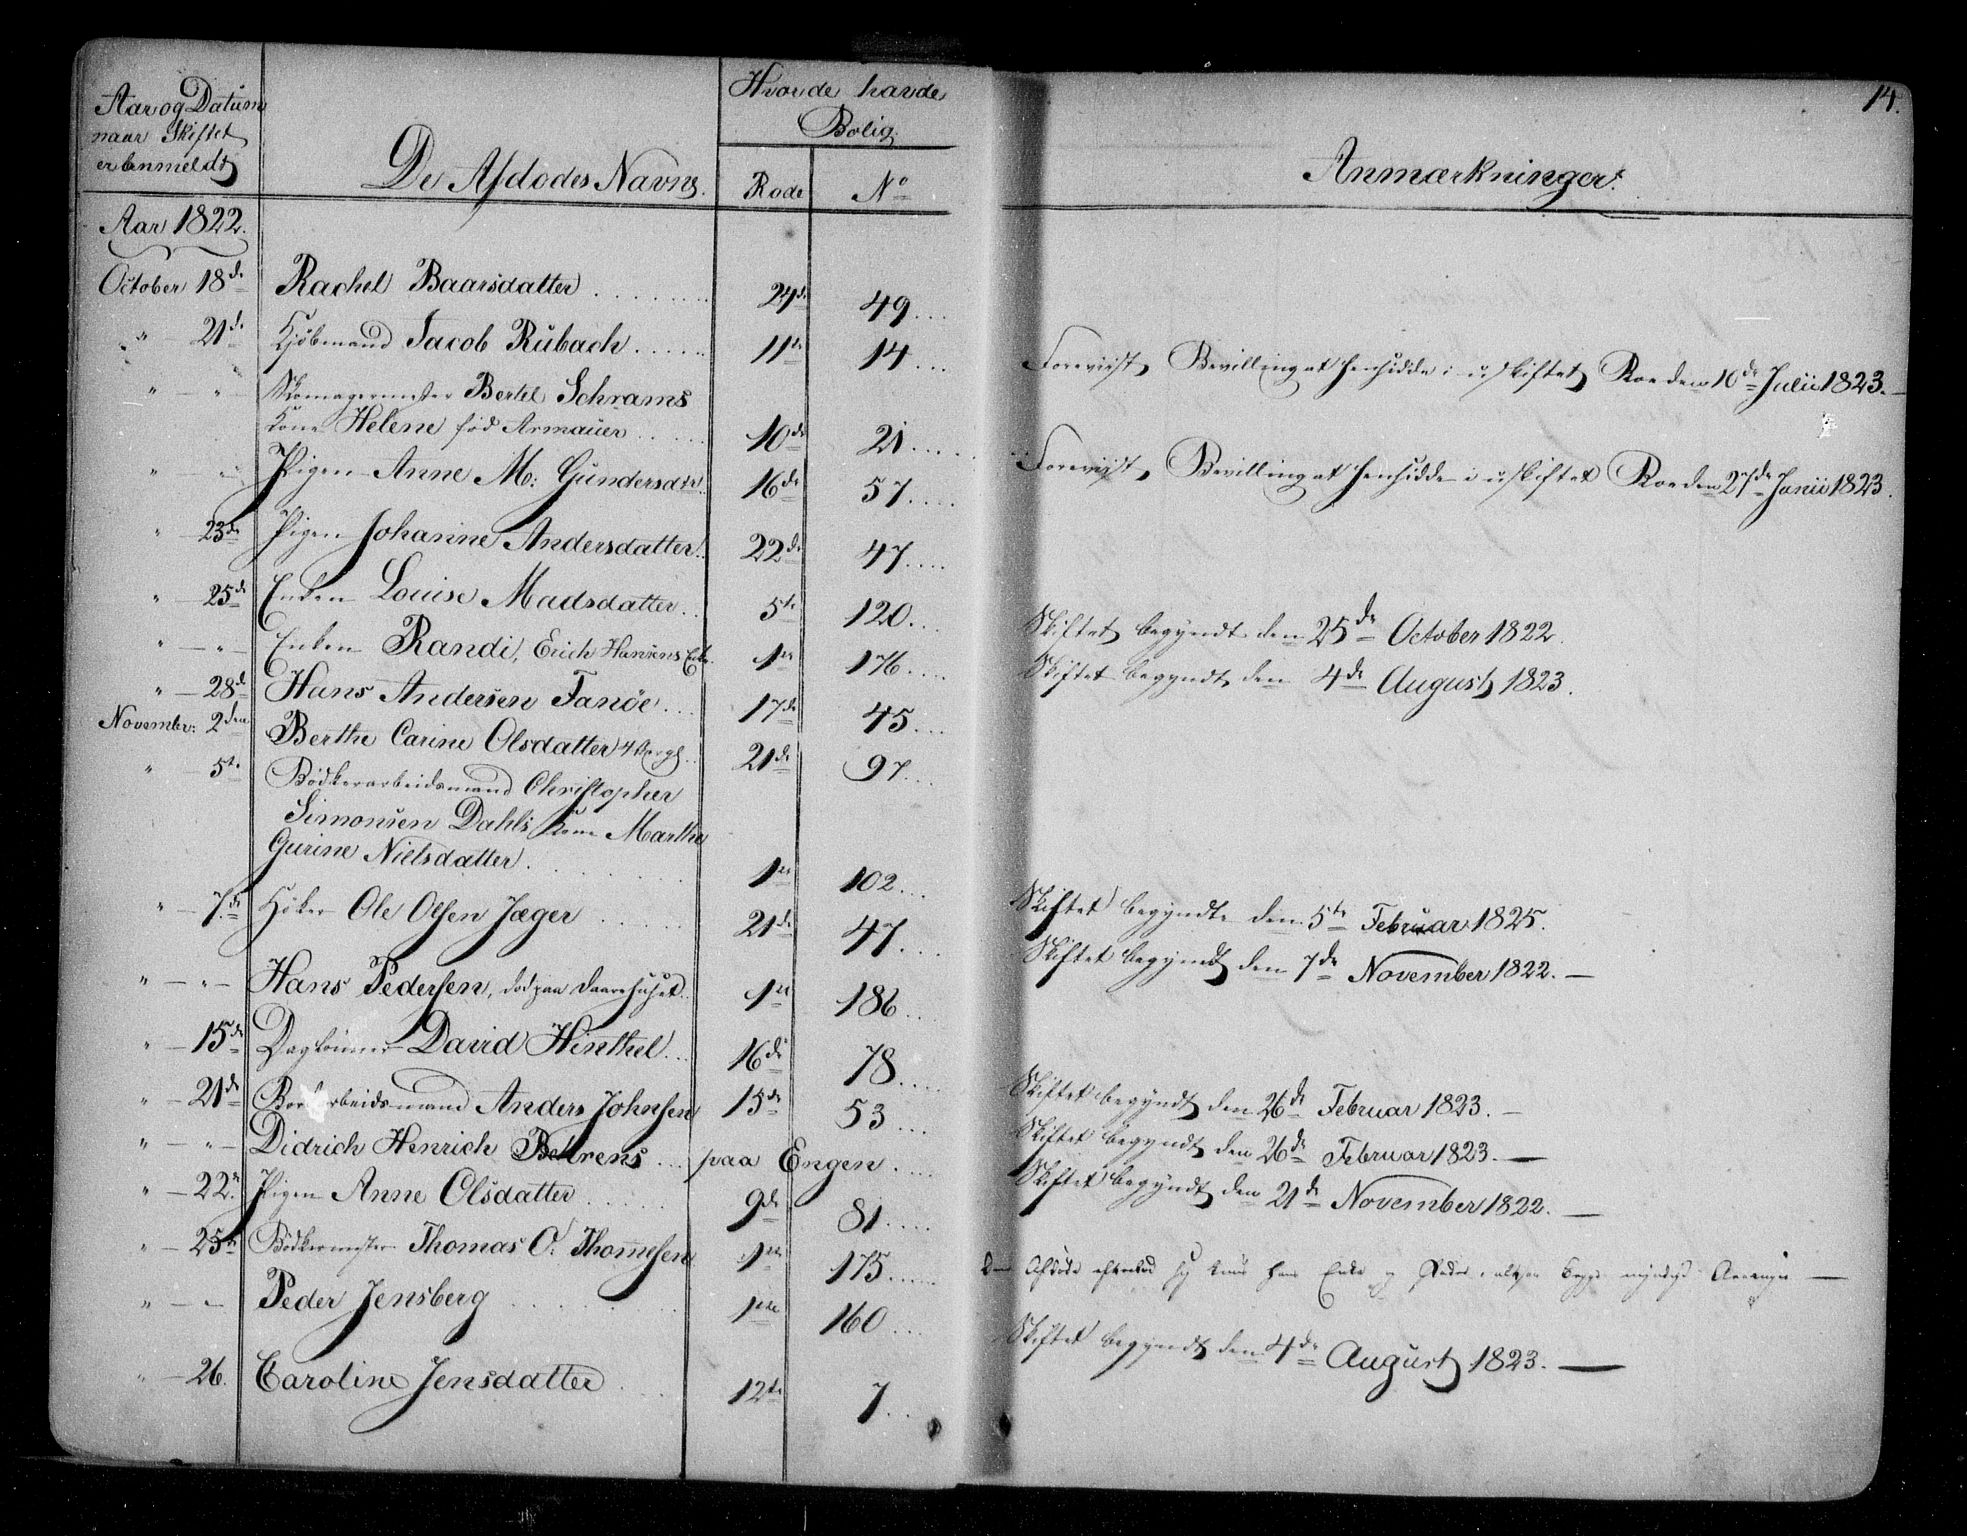 14.
Aar og Datum
naar Skiftet
er anmeldt
De Afdødes Navne.
Hvor de havde
Bolig.
Rode
No
Anmærkninger.
Aar 1822.
October 18de Rachel Baarsdatter 24de 49
" 21de Kjøbmand Jacob Rübach 11te 14 Foreviist Bevilling at hensidde i uskiftet Boe den 10de Julii 1823.
" " Skomagermester Bertel Schrams
Kone Helene fød Armauer 10de 21 Foreviist Bevilling at hensidde i uskiftet Boe den 27de Junii 1823.
" " Pigen Anne M: Gundersdtr. 16de 57
" 23de Pigen Johanne Andersdatter 22de 47
" 25de Enken Louise Madsdatter 5te 120 Skiftet begyndt den 25de October 1822.
" " Enken Randi, Erich Hansens Enke 1ste 176 Skiftet begyndt den 4de August 1823.
" 28de Hans Andersen Fanöe 17de 45
November: 2den Berthe Carine Olsdatter 21de 97
" 5te Bödkerarbeidsmand Christopher
Simonsen Dahls Kone Marthe
Gurine Nielsdatter 1ste 102 Skiftet begyndte den 5te Februar 1825.
" 7de Höker Ole Olsen Jæger 21de 47 Skiftet begyndt den 7de November 1822.
" " Hans Pedersen, død paa Daarehuset 1ste 186
" 15de Daglönner David Hinthel 16de 78 Skiftet begyndt den 26de Februar 1823.
" 21de Bodarbeidsmand Anders Johnsen 15de 53 Skiftet begyndt den 26de Februar 1823.
" " Didrich Henrich Behrens paa Engen Skiftet begyndt den 21de November 1822.
" 22de Pigen Anne Olsdatter 9de 81
" 25de Bödkermester Thomas O: Thomesen 1ste 175 Den Afdøde efterlod sig kuns hans Enke og begge myndige
" " Peder Jensberg 1ste 160 Skiftet begyndt den 4de August 1823.
" 26. Caroline Jensdatter 12te 7